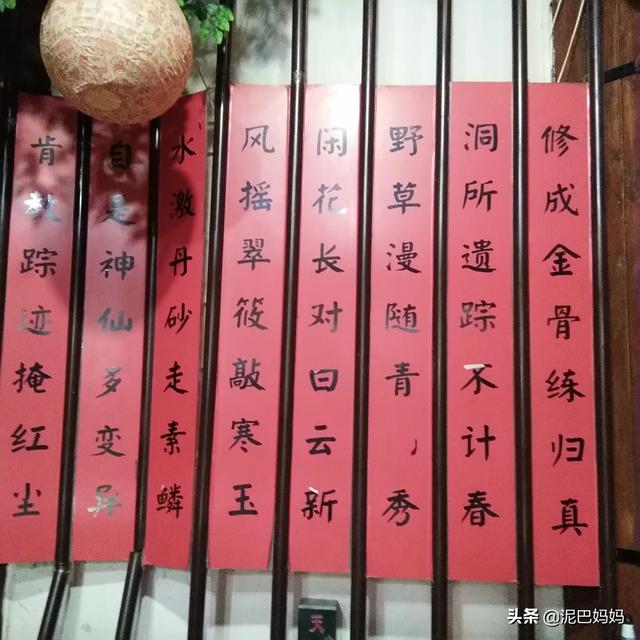 修成金骨练归真
洞所遗踪不计春
野草漫随青秀
闲花长对曰云新
风摇翠筱敲寒玉
水激丹砂走素鳞
自是神仙多变异
肯踪迹掩红尘
天
头条 @泥巴妈妈